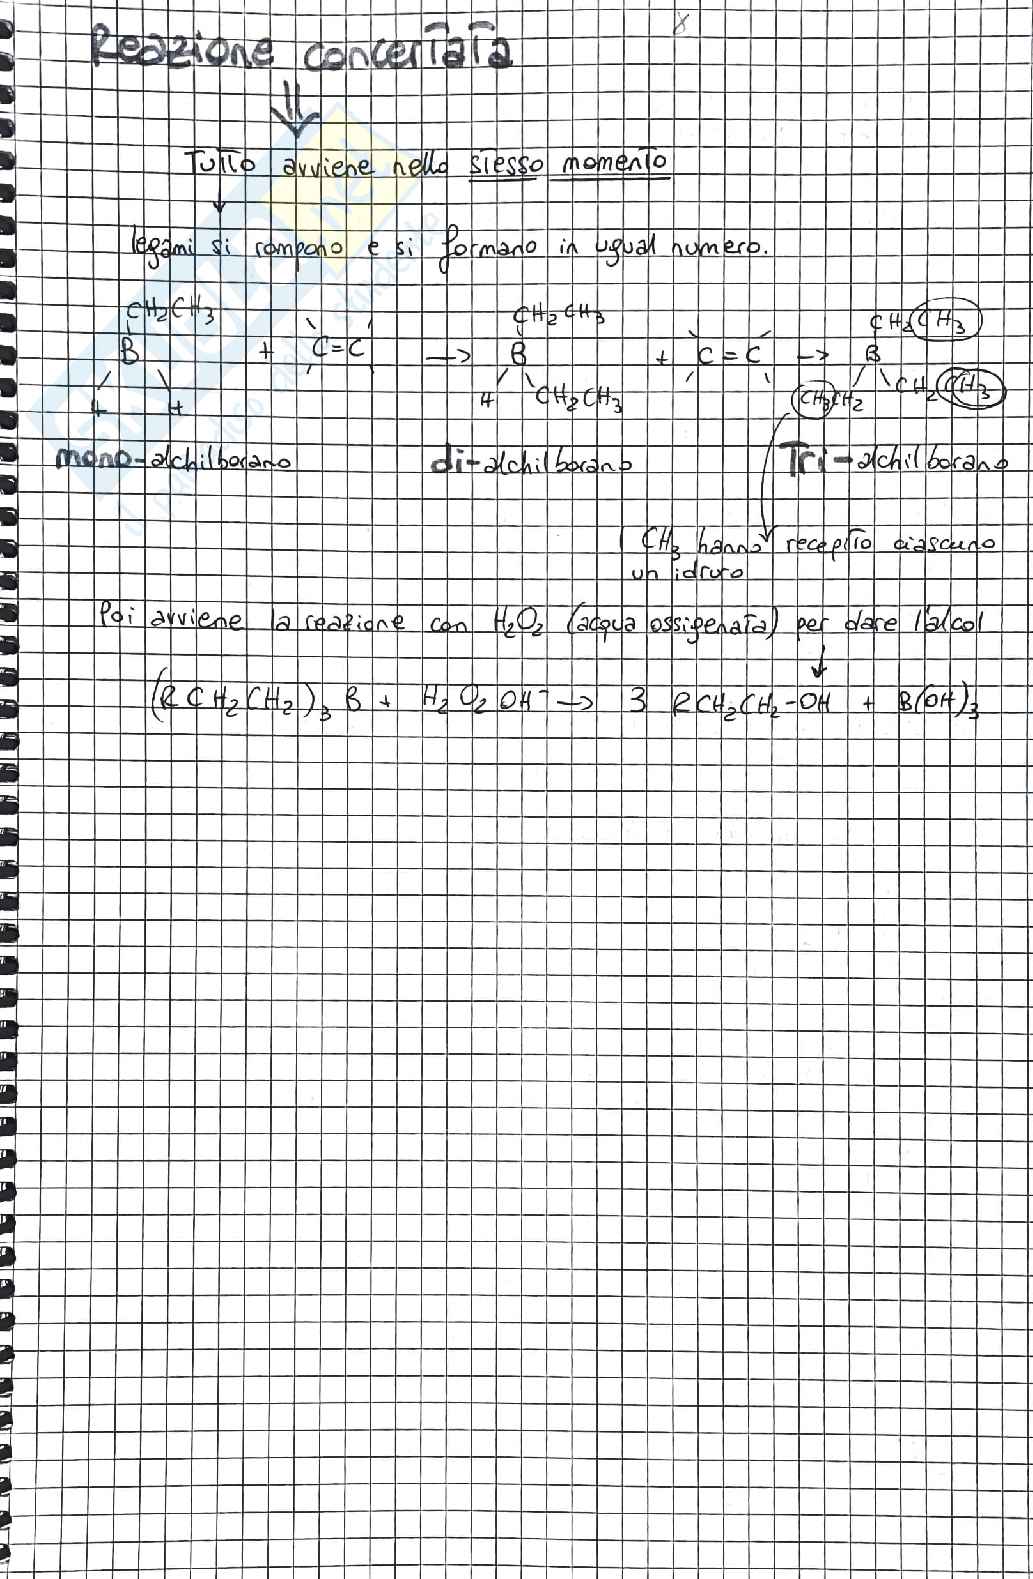 Reazione concertata
Tutto avviene nello stesso momento
legami si rompono e si formano in ugual numero.
CH2CH3 CH2CH3 CH2CH3
B + C=C → B + C=C → B
H H H CH2CH3 CH3CH2 CH2CH3
mono-alchilborano di-alchilborano Tri-alchilborano
CH3 hanno recepito ciascuno
un idruro
Poi avviene la reazione con H2O2 (acqua ossigenata) per dare l'alcol
(RCH2CH2)3 B + H2O2 OH⁻ → 3 RCH2CH2-OH + B(OH)3